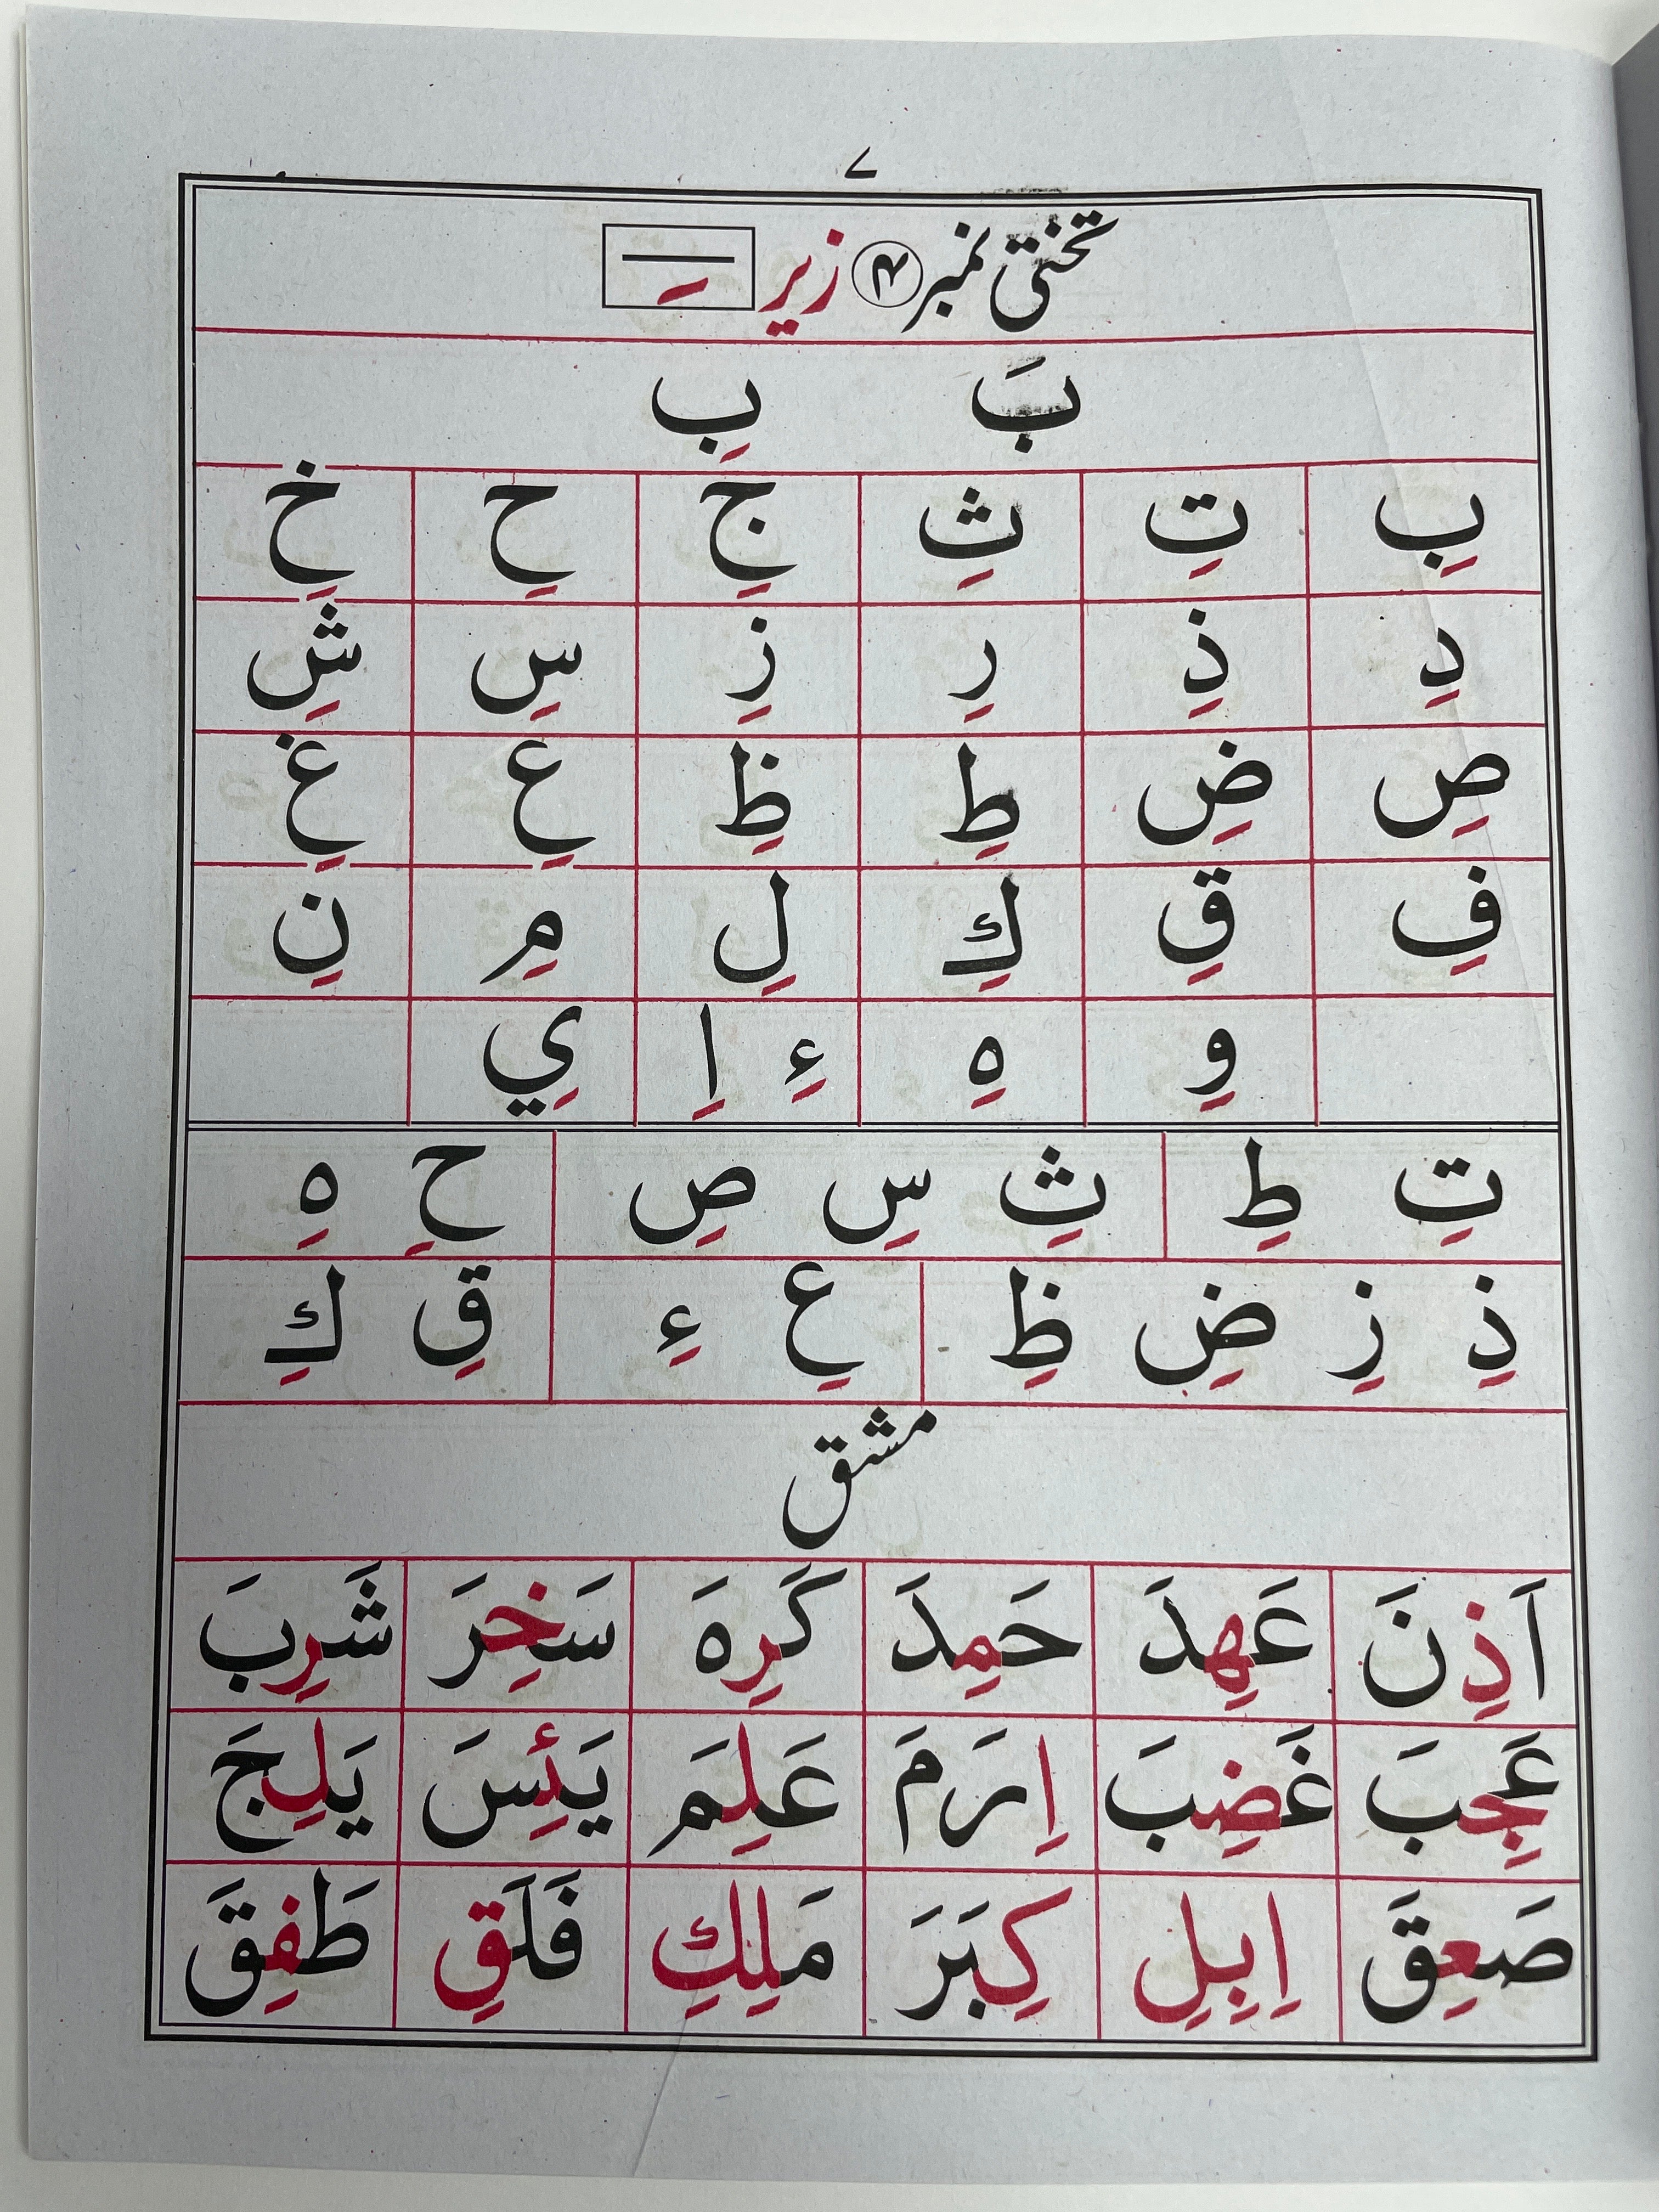 ۷
تختی نمبر ۴ زیر ــِـ
بَ بِ
بِ تِ ثِ جِ حِ خِ
دِ ذِ رِ زِ سِ شِ
صِ ضِ طِ ظِ عِ غِ
فِ قِ كِ لِ مِ نِ
وِ هِ ءِ اِ يِ
تِ طِ ثِ سِ صِ حِ هِ
ذِ زِ ضِ ظِ عِ ءِ قِ كِ
مشق
اَذِنَ عَهِدَ حَمِدَ كَرِهَ سَخِرَ شَرِبَ
عَجِبَ غَضِبَ اِرَمَ عَلِمَ يَئِسَ يَلِجَ
صَعِقَ اِبِلِ كِبَرَ مَلِكِ فَلَقِ طَفِقَ